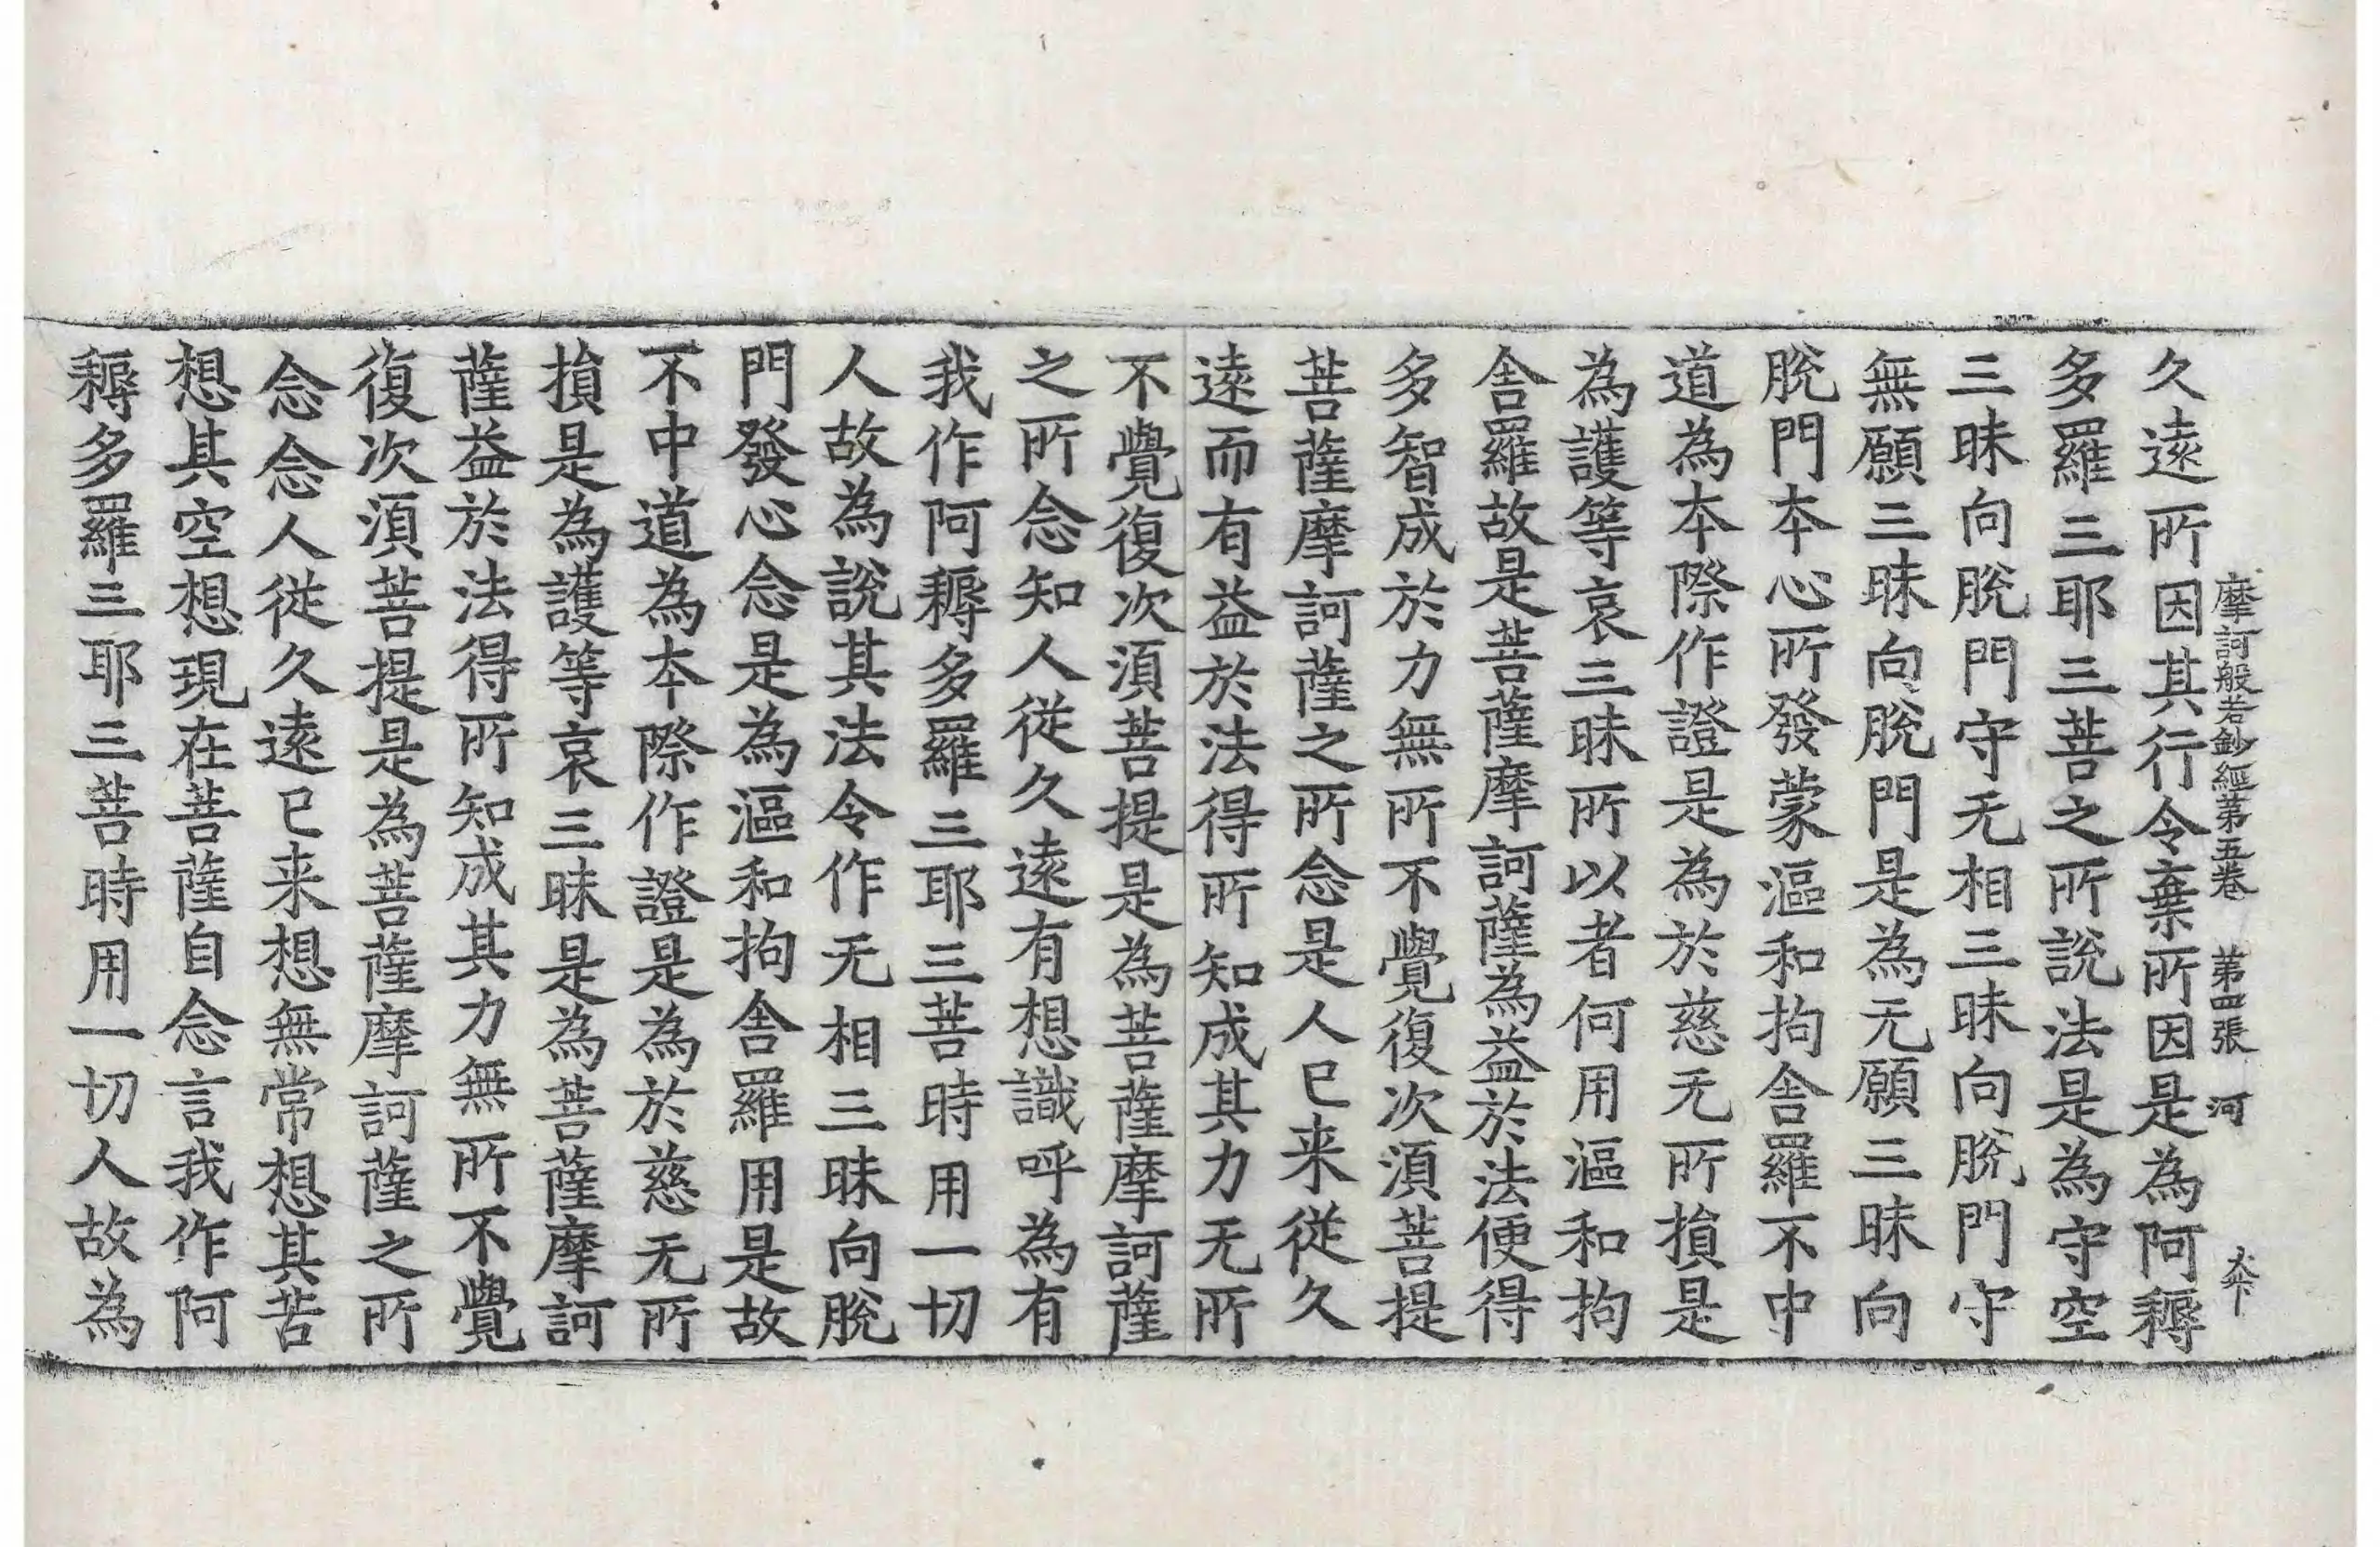 摩訶般若鈔經第五卷　第四張　河
久遠所因其行令棄所因是為阿耨
多羅三耶三菩之所說法是為守空
三昧向脫門守无相三昧向脫門守
無願三昧向脫門是為无願三昧向
脫門本心所發蒙漚和拘舍羅不中
道為本際作證是為於慈无所損是
為護等哀三昧所以者何用漚和拘
舍羅故是菩薩摩訶薩為益於法便得
多智成於力無所不覺復次須菩提
菩薩摩訶薩之所念是人已来從久
遠而有益於法得所知成其力无所
不覺復次須菩提是為菩薩摩訶薩
之所念知人從久遠有想識呼為有
我作阿耨多羅三耶三菩時用一切
人故為說其法令作无相三昧向脫
門發心念是為漚和拘舍羅用是故
不中道為本際作證是為於慈无所
損是為護等哀三昧是為菩薩摩訶
薩益於法得所知成其力無所不覺
復次須菩提是為菩薩摩訶薩之所
念念人從久遠已来想無常想其苦
想其空想現在菩薩自念言我作阿
耨多羅三耶三菩時用一切人故為